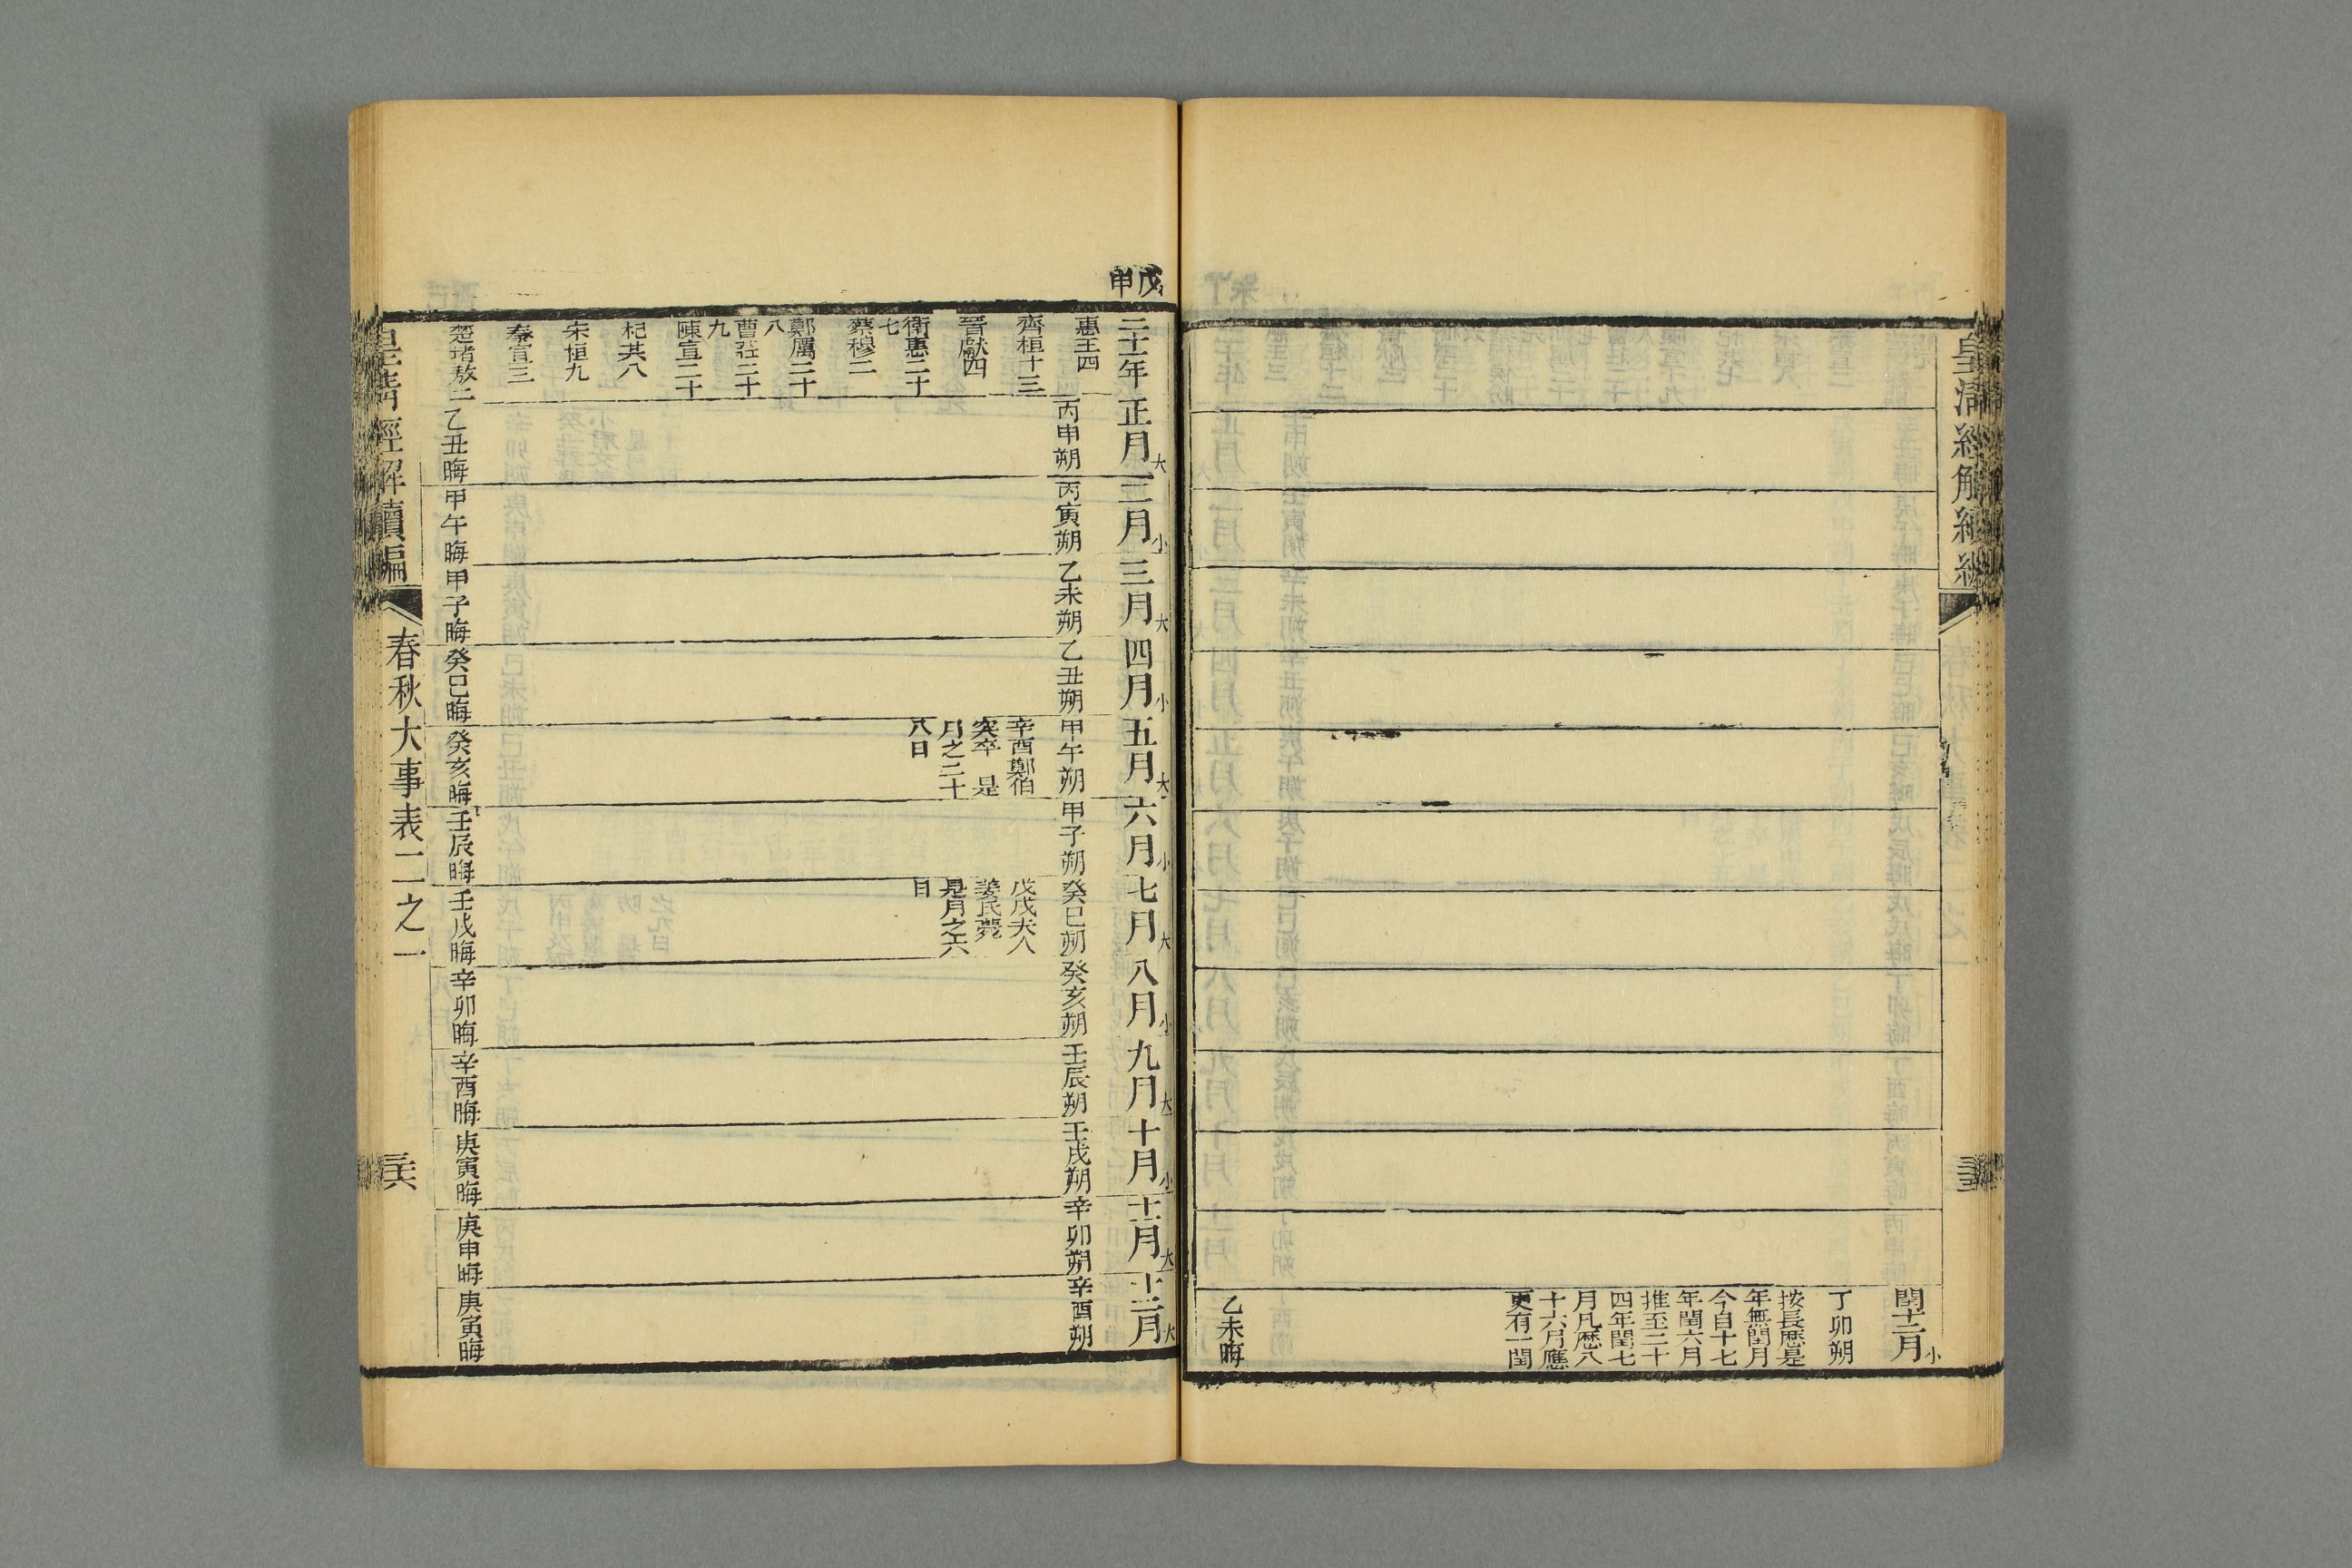 皇清經解續編
閏十二月小
丁卯朔
按長厯是
年無閏月
今自十七
年閏六月
推至二十
四年閏七
月凡厯八
十六月應
更有一閏
乙未晦
戊申
二十一年
正月大
二月小
三月大
四月小
五月大
六月小
七月大
八月小
九月大
十月小
十一月大
十二月大
惠王四
齊桓十三
晉獻四
衛惠二十
七
蔡穆二
鄭厲二十
八
曹莊二十
九
陳宣二十
杞共八
宋桓九
秦宣三
楚堵敖二
丙申朔
丙寅朔
乙未朔
乙丑朔
甲午朔
甲子朔
癸巳朔
癸亥朔
壬辰朔
壬戌朔
辛卯朔
辛酉朔
辛酉鄭伯
突卒 是
月之二十
八日
戊戌夫人
姜氏薨
是月之六
日
乙丑晦
甲午晦
甲子晦
癸巳晦
癸亥晦
壬辰晦
壬戌晦
辛卯晦
辛酉晦
庚寅晦
庚申晦
庚寅晦
皇清經解續編
春秋大事表二之一